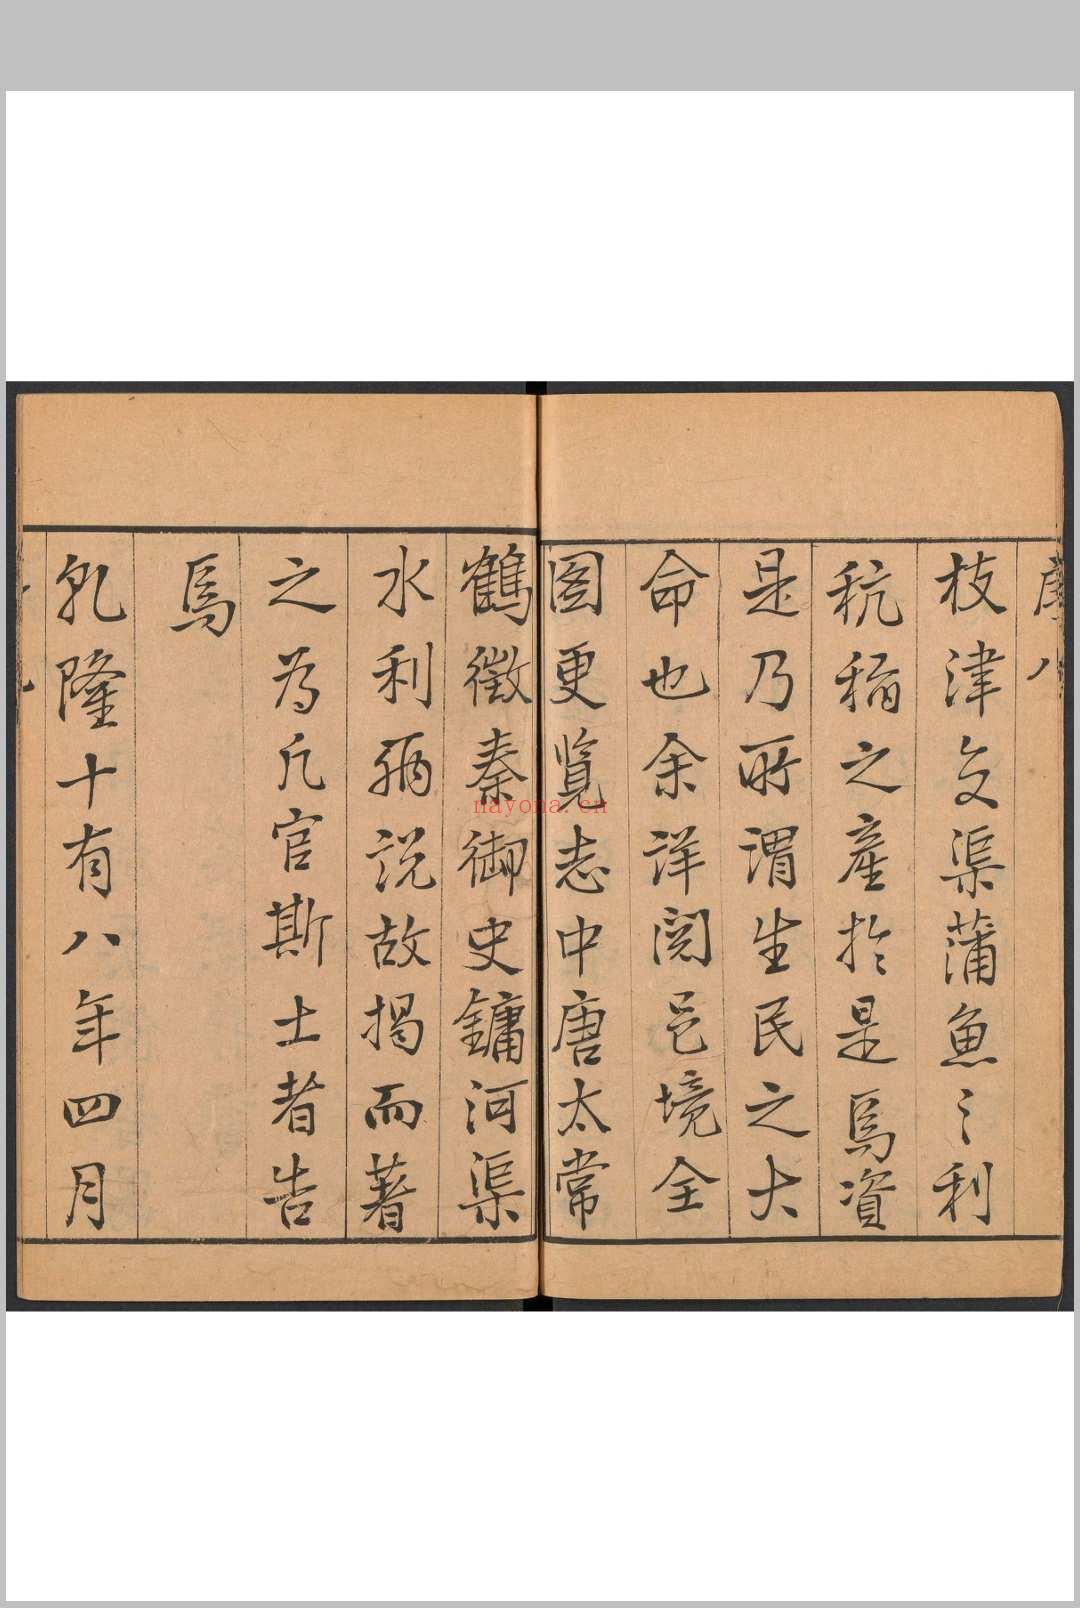 枝津交渠蒲魚之利
秔稻之產於是焉資
是乃所謂生民之大
命也余詳閱邑境全
图更覽志中唐太常
鶴徵秦御史鏞河渠
水利两説故揭而著
之為凡官斯土者告
焉
乾隆十有八年四月
nayona.cn